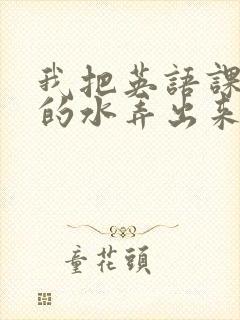 我把英語課
的水弄出来
童花頭